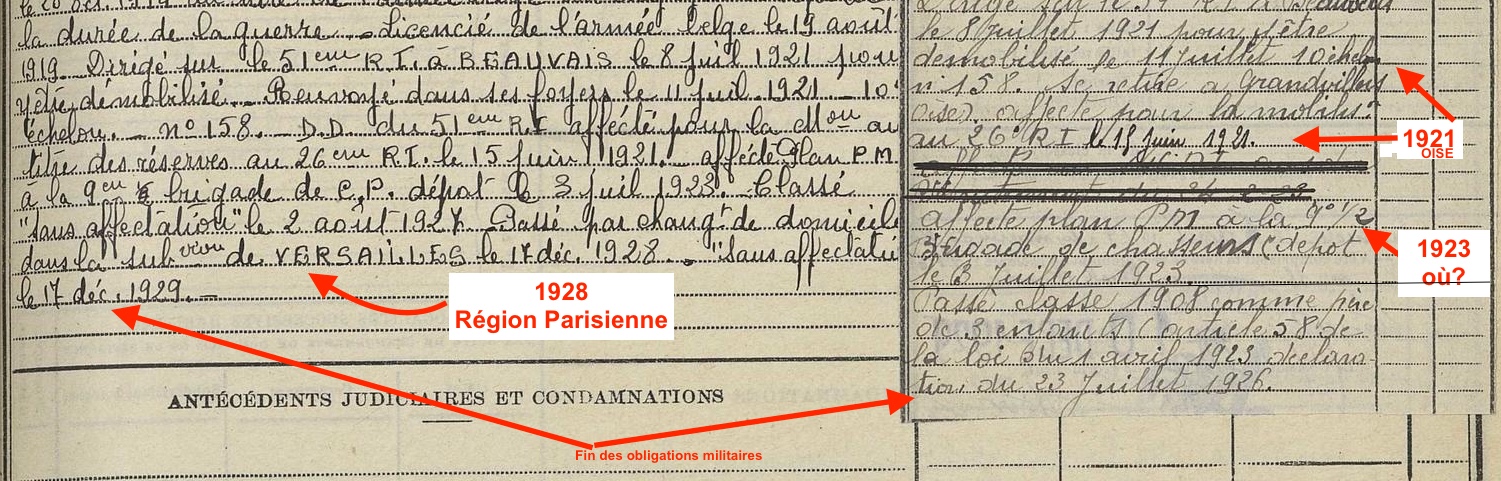 la durée de la guerre _ Licencié de l'armée belge le 19 août
1919. Dirigé sur le 51eme R.I. à BEAUVAIS le 8 juil 1921 pour
y être démobilisé. _ Renvoyé dans ses foyers le 11 juil 1921 _ 10e
échelon. _ n° 158. _ D.D. du 51eme R.I affecté pour la Mon au
titre des réserves au 26eme R.I. le 15 juin 1921. _ affecté Plan P.M.
à la 9eme brigade de C.P. dépôt le 3 juil 1923. Classé
"sans affectation" le 2 août 1927. Passé par changt de domicile
dans la subvion de VERSAILLES le 17 déc. 1928 _ "sans affectatio
le 17 déc. 1929. _
ANTÉCÉDENTS JUDICIAIRES ET CONDAMNATIONS
le 8 Juillet 1921 pour être
démobilisé le 11 juillet 10 échelon
n° 158. Se retire à Grandvilliers
Oise) affecté pour la mobilis.
au 26e RI le 15 juin 1921.
affecté plan PM à la 9e 1/2
Brigade de chasseurs (dépôt
le 3 Juillet 1923
Passé classe 1908 comme père
de 3 enfants (article 58 de
la loi du 1 avril 1923 déclara-
tion du 23 Juillet 1926.
1921
OISE
1923
où?
1928
Région Parisienne
Fin des obligations militaires